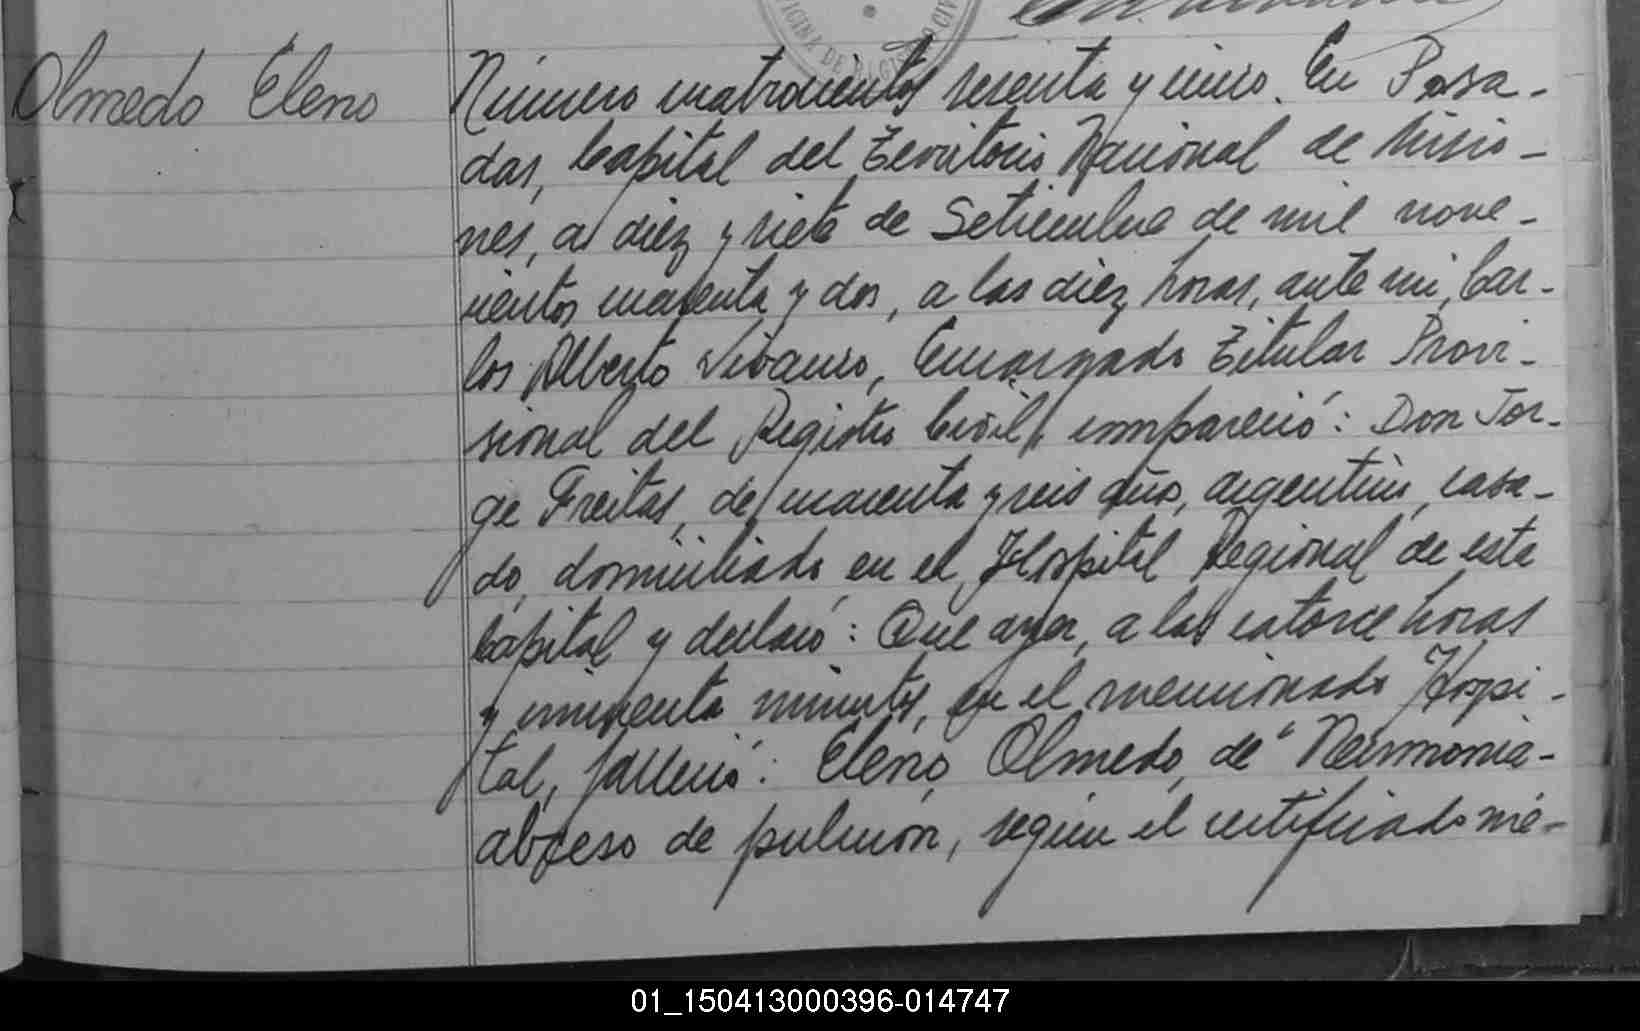 OFICINA DE REGISTRO CIVIL
Olmedo Eleno
Número cuatrocientos sesenta y cinco. En Posa-
das, Capital del Territorio Nacional de Misio-
nes, a diez y siete de Setiembre de mil nove-
cientos cuarenta y dos, a las diez horas, ante mi, Car-
los Alberto Vivanco, Encargado Titular Provi-
sional del Registro Civil, compareció: Don Jor-
ge Freitas, de cuarenta y seis años, argentino, casa-
do, domiciliado en el Hospital Regional de esta
Capital y declaró: Que ayer, a las catorce horas
y cincuenta minutos, en el mencionado Hospi-
tal, falleció: Eleno Olmedo, de "Neumonia-
abceso de pulmón, según el certificado mé-
01_150413000396-014747